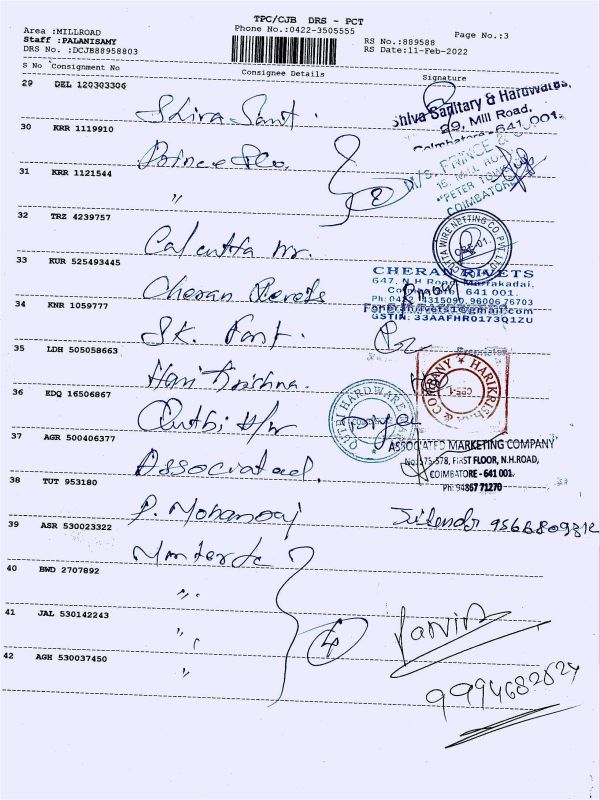 TPC/CJB DRS - PCT
Area :MILLROAD
Phone No.:0422-3505555
Page No.:3
Staff :PALANISAMY
RS No.:889588
DRS No. :DCJB88958803
RS Date:11-Feb-2022
S No Consignment No
Consignee Details
Signature
29 DEL 120303306
Shiva Sanit.
Shiva Sanitary & Hardwares,
29, Mill Road,
Coimbatore - 641 001.
30 KRR 1119910
Prince &Co.
M/S. PRINCE &
15, MILL ROAD
"PETER TOWERS"
COIMBATORE
31 KRR 1121544
"
2
32 TRZ 4239757
Calcutta Wr.
33 KUR 525493445
Cheran Revets
CHERAN RIVETS
647, N.H Road, Marakadai,
Coimbatore - 641 001.
Ph: 0422 4315090, 96006 76703
GSTIN: 33AAFHR0173Q1ZU
34 KNR 1059777
SK. Fast.
Proprietor
35 LDH 505058663
Hari Krishna.
HARIKRISHNA & COMPANY
36 EDQ 16506867
Quthbi H/w
37 AGR 500406377
Associated.
ASSOCIATED MARKETING COMPANY
No. 575-578, FIRST FLOOR, N.H.ROAD,
COIMBATORE - 641 001.
Ph: 94867 71270
38 TUT 953180
P. Mohanraj
Jitendr
39 ASR 530023322
40 BWD 2707892
"
41 JAL 530142243
"
4
42 AGH 530037450
"
9994682624